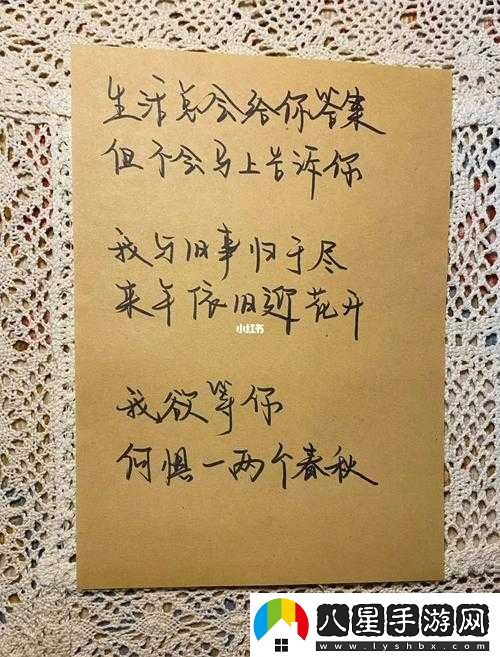 生活总会给你答案
但不会马上告诉你
我与旧事归于尽
来年依旧迎花开
小红书
我欲等你
何惧一两个春秋
八星手游网
www.lyshbx.com